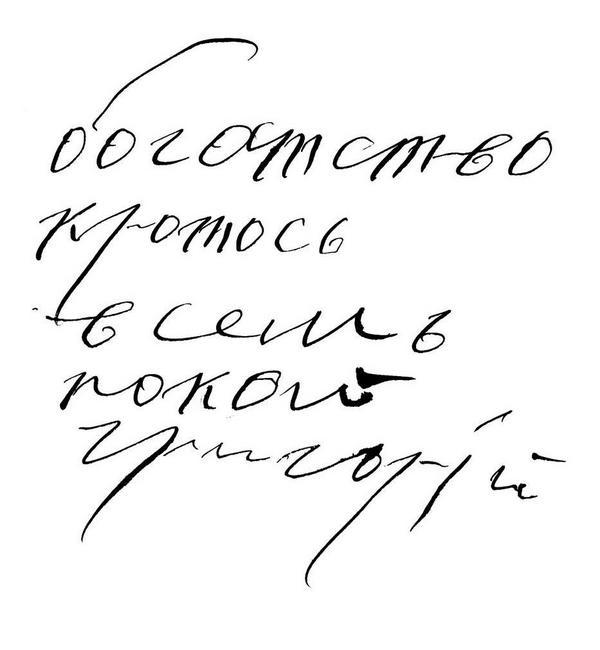 богатство
кротось
всемъ
покой
григорій